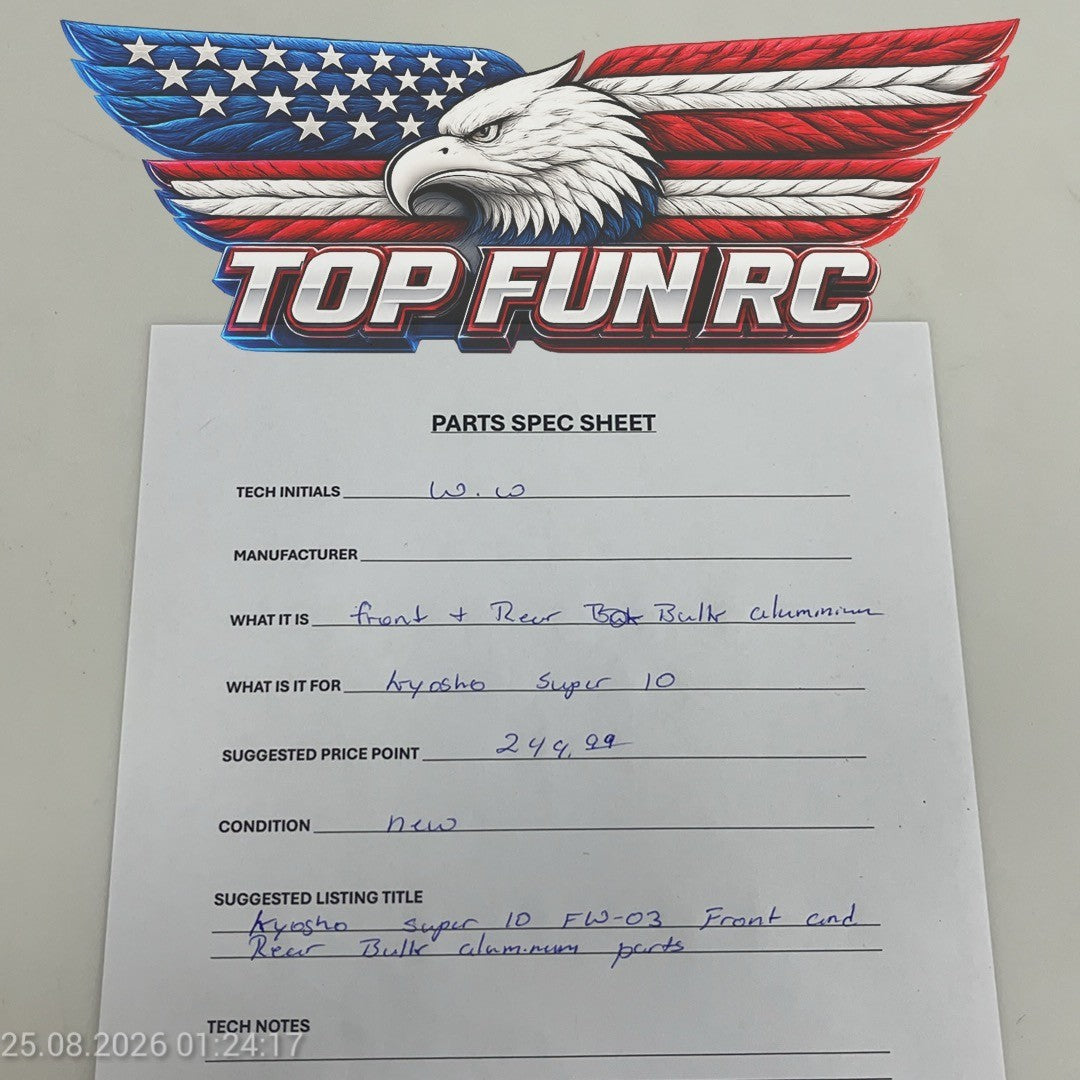 TOP FUN RC
PARTS SPEC SHEET
TECH INITIALS W.W
MANUFACTURER
WHAT IT IS front + Rear Bulk aluminium
WHAT IS IT FOR Kyosho Super 10
SUGGESTED PRICE POINT 249.99
CONDITION new
SUGGESTED LISTING TITLE
Kyosho Super 10 FW-03 Front and
Rear Bulk aluminum parts
TECH NOTES
25.08.2026 01:24:17